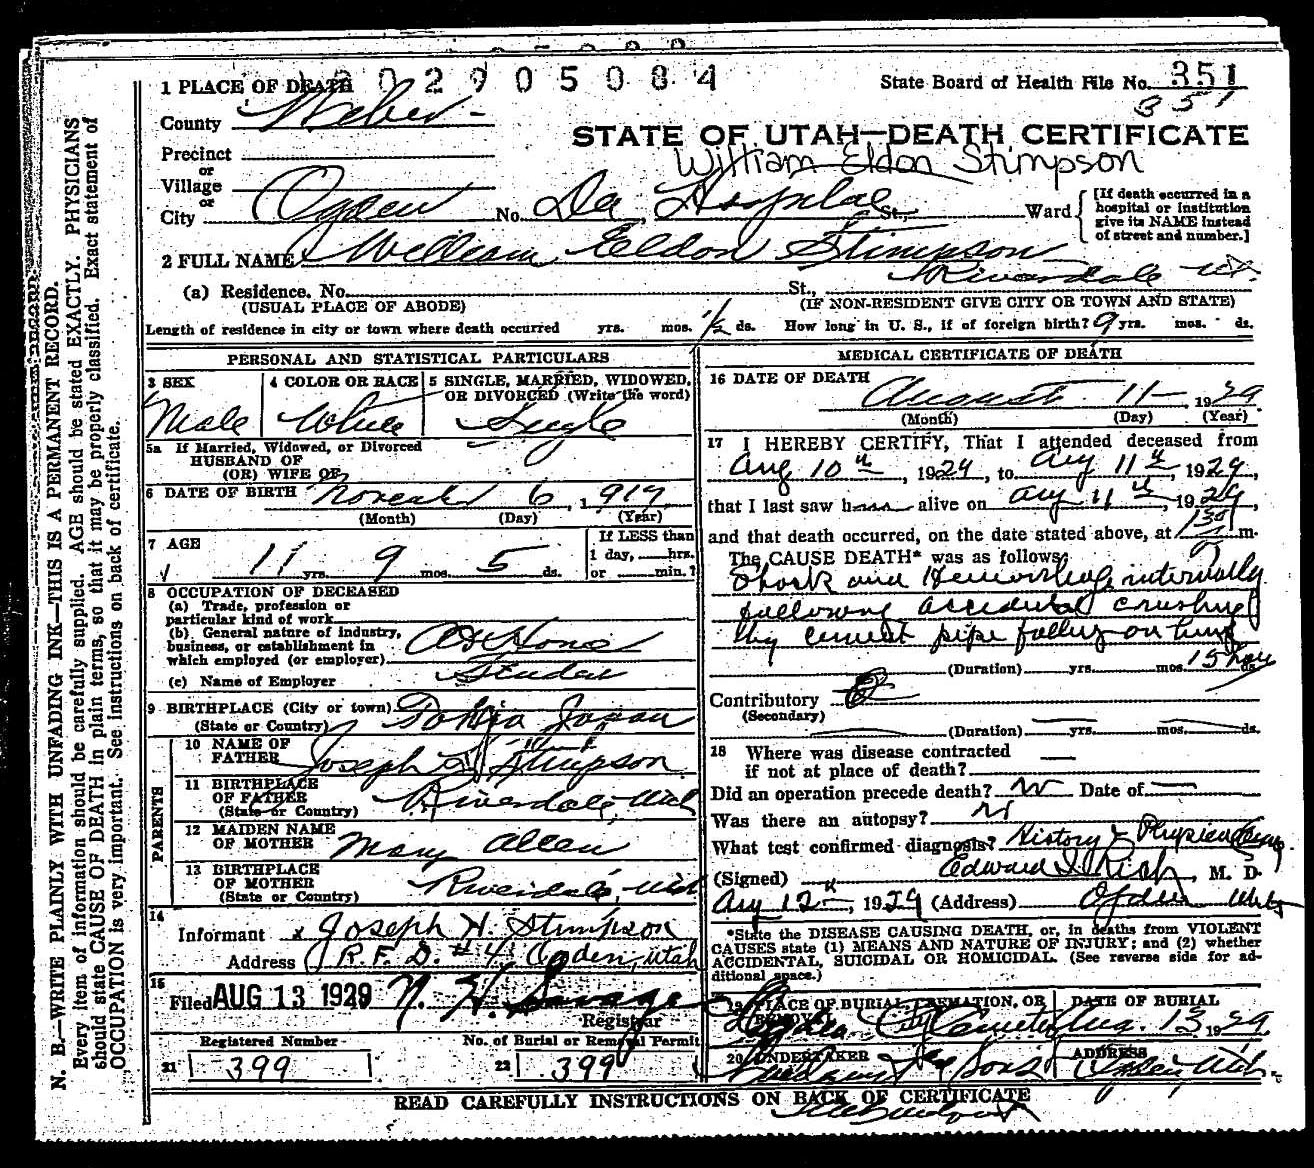 2 9 0 5 0 8 4
1 PLACE OF DEATH
State Board of Health File No. 351
351
County Weber
STATE OF UTAH—DEATH CERTIFICATE
Precinct
William Eldon Stimpson
or
Village
or
City Ogden No. Dee Hospital St., Ward
[If death occurred in a hospital or institution give its NAME instead of street and number.]
2 FULL NAME William Eldon Stimpson
(a) Residence. No. St., Riverdale Ut
(USUAL PLACE OF ABODE) (IF NON-RESIDENT GIVE CITY OR TOWN AND STATE)
Length of residence in city or town where death occurred yrs. mos. 1/2 ds. How long in U. S., if of foreign birth? 9 yrs. mos. ds.
PERSONAL AND STATISTICAL PARTICULARS
3 SEX
Male
4 COLOR OR RACE
White
5 SINGLE, MARRIED, WIDOWED, OR DIVORCED (Write the word)
Single
5a If Married, Widowed, or Divorced
HUSBAND OF
(OR) WIFE OF
6 DATE OF BIRTH November 6, 1917
(Month) (Day) (Year)
7 AGE
11 yrs. 9 mos. 5 ds.
If LESS than
1 day, hrs.
or min.?
8 OCCUPATION OF DECEASED
(a) Trade, profession or
particular kind of work
(b) General nature of industry,
business, or establishment in
which employed (or employer) At Home
Student
(c) Name of Employer
9 BIRTHPLACE (City or town)
(State or Country) Tokio Japan
PARENTS
10 NAME OF
FATHER Joseph H. Stimpson
11 BIRTHPLACE
OF FATHER
(State or Country) Riverdale, Utah
12 MAIDEN NAME
OF MOTHER Mary Allen
13 BIRTHPLACE
OF MOTHER
(State or Country) Riverdale, Utah
14
Informant x Joseph H. Stimpson
Address R. F. D. #4. Ogden, Utah
15
Filed AUG 13 1929 N. H. Savage
Registrar
Registered Number
21 399
No. of Burial or Removal Permit
22 399
MEDICAL CERTIFICATE OF DEATH
16 DATE OF DEATH
August 11 - 1929
(Month) (Day) (Year)
17 I HEREBY CERTIFY, That I attended deceased from
Aug 10th, 1929, to Aug 11th, 1929,
that I last saw h alive on Aug 11th, 1929,
and that death occurred, on the date stated above, at m.
The CAUSE DEATH* was as follows:
Shock and Hemorrhage internally
following accidental crushing
by cement pipe falling on lung
(Duration) yrs. mos. 15 hours ds.
Contributory
(Secondary)
(Duration) yrs. mos. ds.
18 Where was disease contracted
if not at place of death?
Did an operation precede death? No Date of
Was there an autopsy? No
What test confirmed diagnosis? History & Physical Exam.
(Signed) Edward I. Rich, M. D.
Aug 12, 1929 (Address) Ogden Utah
*State the DISEASE CAUSING DEATH, or, in deaths from VIOLENT
CAUSES state (1) MEANS AND NATURE OF INJURY; and (2) whether
ACCIDENTAL, SUICIDAL OR HOMICIDAL. (See reverse side for ad-
ditional space.)
19 PLACE OF BURIAL, CREMATION, OR REMOVAL
Ogden City Cemetery
DATE OF BURIAL
Aug. 13 1929
20 UNDERTAKER
& Sons
ADDRESS
Ogden, Utah.
READ CAREFULLY INSTRUCTIONS ON BACK OF CERTIFICATE
N. B.—WRITE PLAINLY WITH UNFADING INK—THIS IS A PERMANENT RECORD.
Every item of information should be carefully supplied. AGE should be stated EXACTLY. PHYSICIANS
should state CAUSE OF DEATH in plain terms, so that it may be properly classified. Exact statement of
OCCUPATION is very important. See instructions on back of certificate.